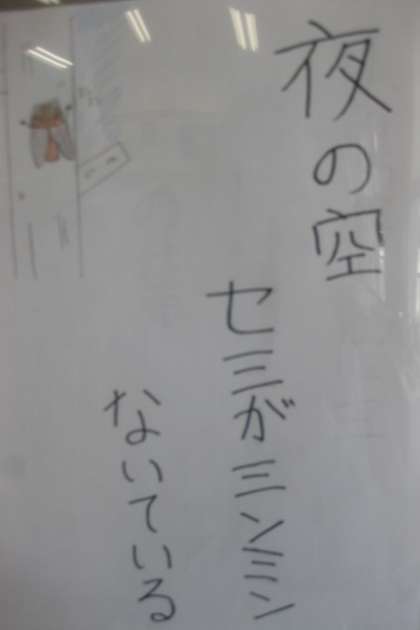 夜の空
セミがミンミン
ないている